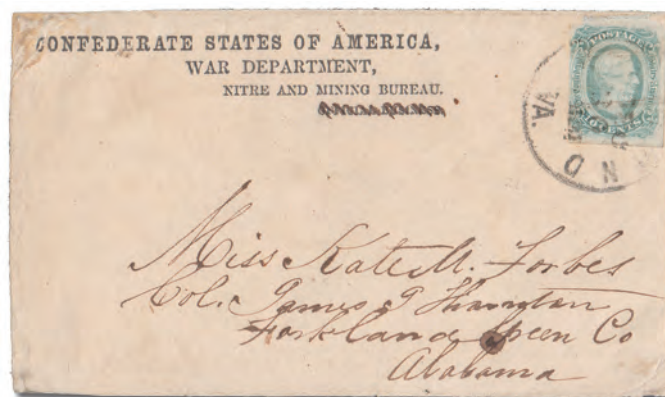 CONFEDERATE STATES OF AMERICA,
WAR DEPARTMENT,
NITRE AND MINING BUREAU.
POSTAGE
CENTS
VA.
ND
Miss Kate M. Forbes
Col. James T Thornton
Forkland Green Co
Alabama